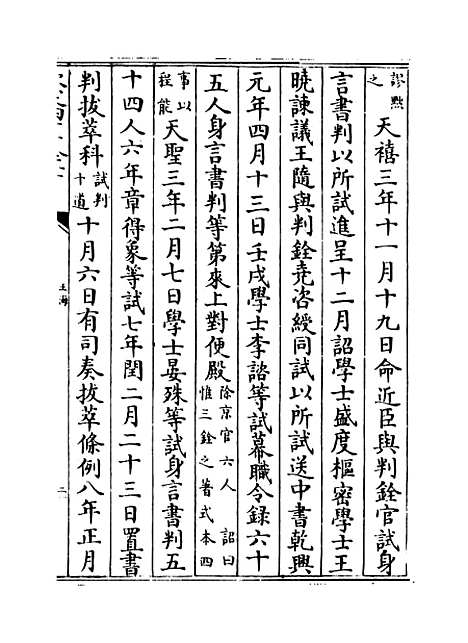 謬黜
之
天禧三年十一月十九日命近臣與判銓官試身
言書判以所試進呈十二月詔學士盛度樞密學士王
曉諫議王隨與判銓堯咨綬同試以所試送中書乾興
元年四月十三日壬戌學士李諮等試幕職令録六十
五人身言書判等第來上對便殿
除京官六人 詔曰
惟三銓之著式本四
事以
程能
天聖三年二月七日學士晏殊等試身言書判五
十四人六年章得象等試七年閏二月二十三日置書
判拔萃科
試判
十道
十月六日有司奏拔萃條例八年正月
玉海